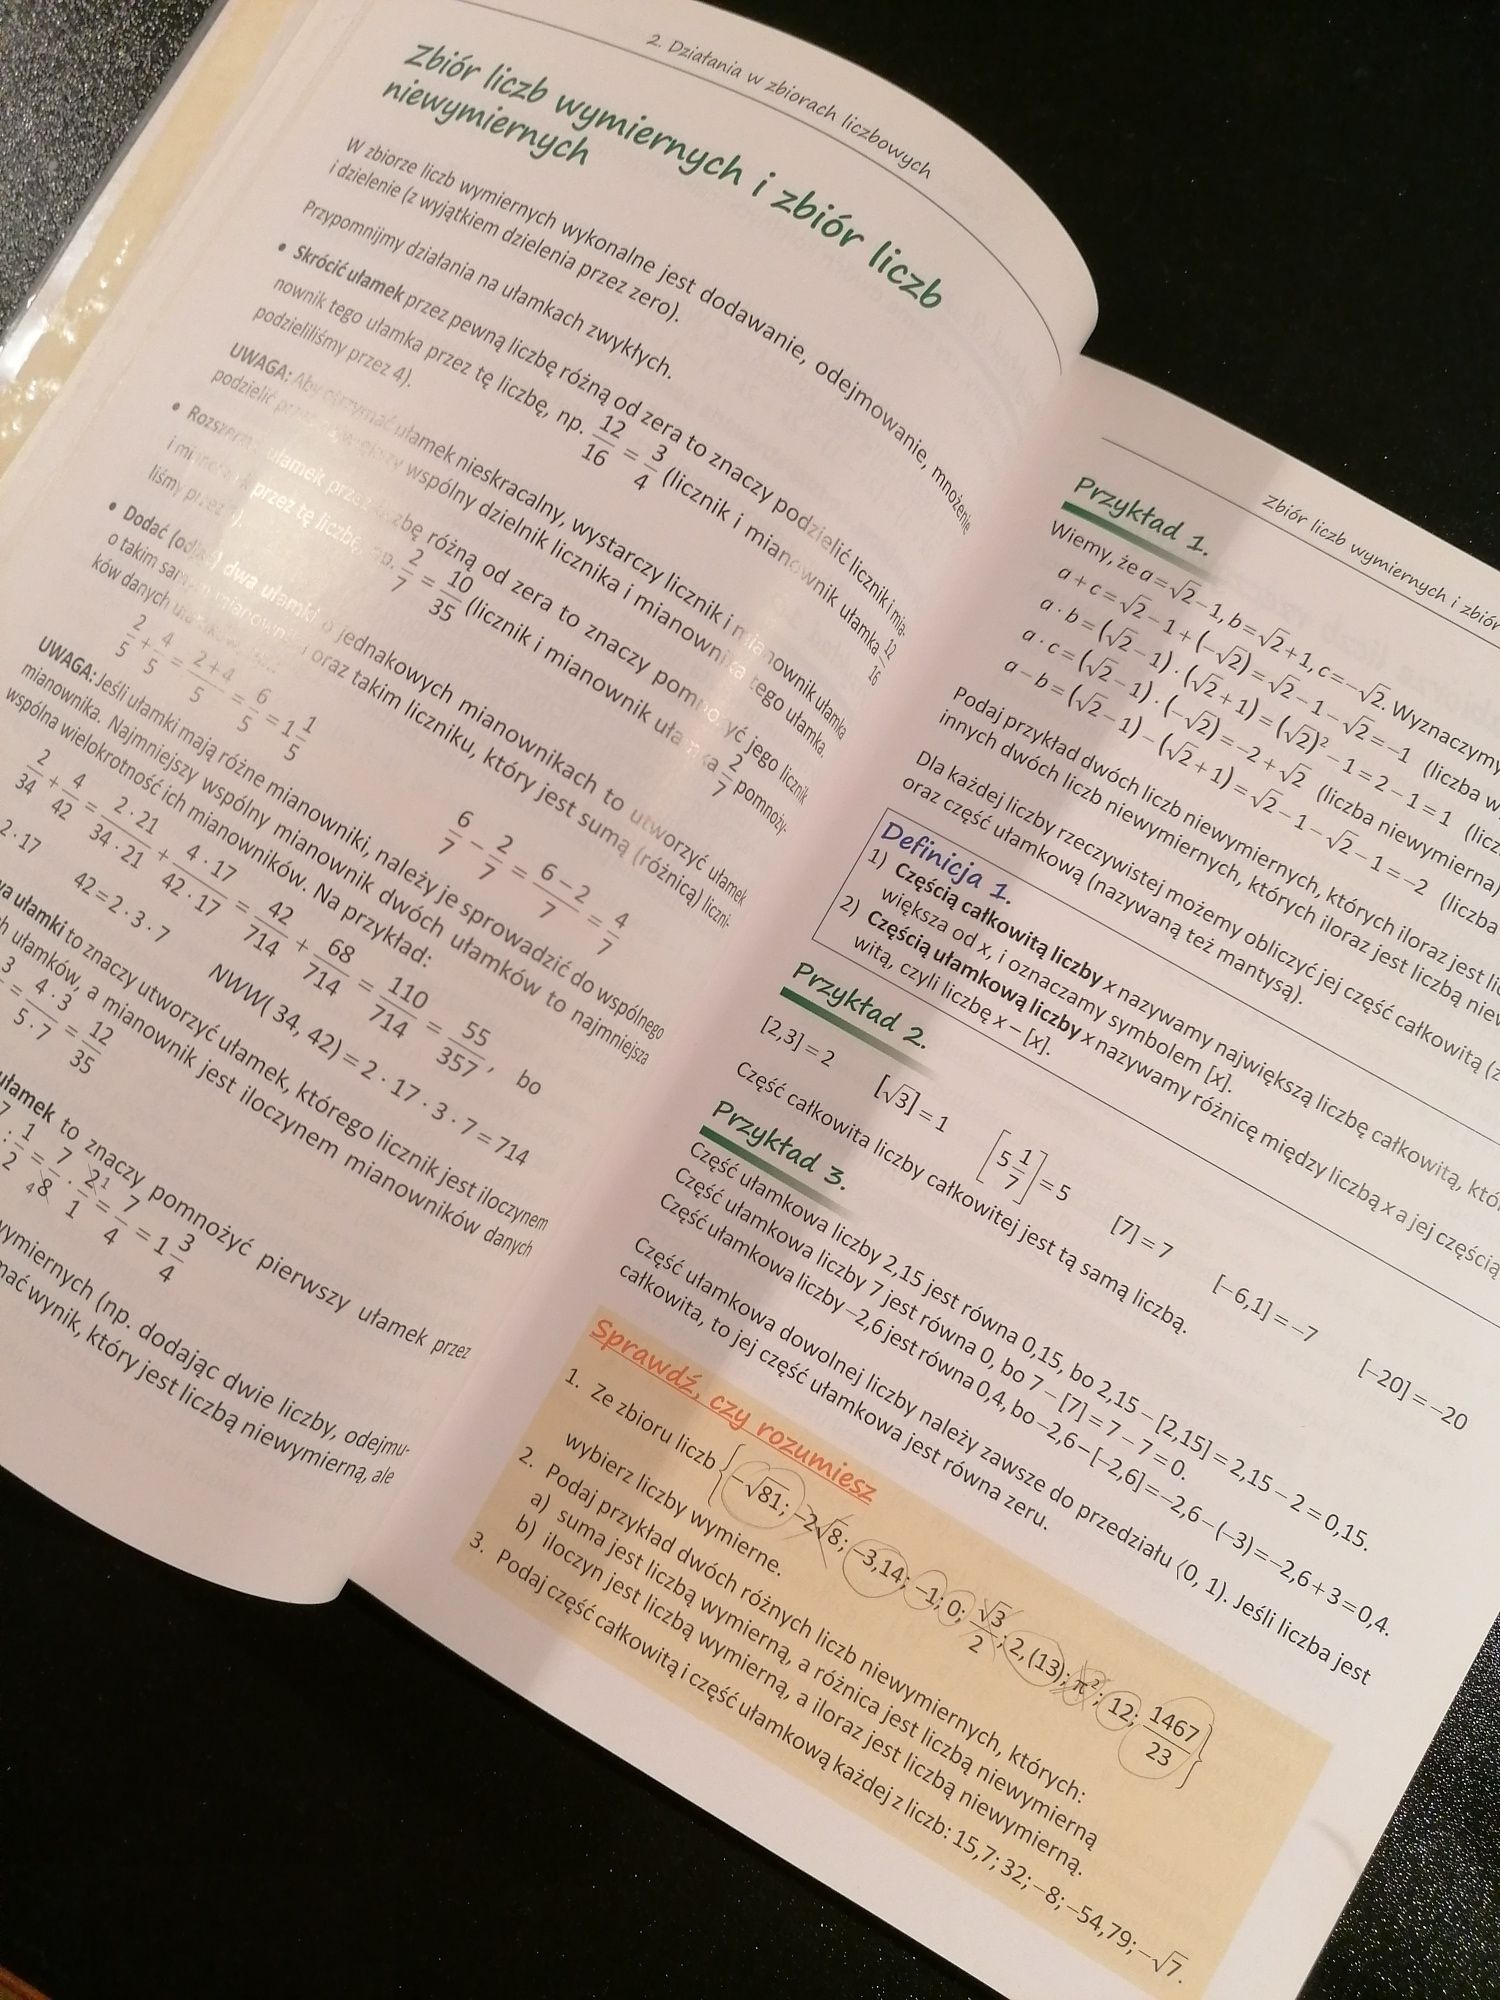 2. Działania w zbiorach liczbowych
Zbiór liczb wymiernych i zbiór liczb
niewymiernych
W zbiorze liczb wymiernych wykonalne jest dodawanie, odejmowanie, mnożenie
i dzielenie (z wyjątkiem dzielenia przez zero).
Przypomnijmy działania na ułamkach zwykłych.
• Skrócić ułamek przez pewną liczbę różną od zera to znaczy podzielić licznik i mia-
nownik tego ułamka przez tę liczbę, np. 12/16 = 3/4 (licznik i mianownik ułamka 12/16
podzieliliśmy przez 4).
UWAGA: Aby otrzymać ułamek nieskracalny, wystarczy licznik i mianownik ułamka
podzielić przez największy wspólny dzielnik licznika i mianownika tego ułamka.
• Rozszerzyć ułamek przez liczbę różną od zera to znaczy pomnożyć jego licznik
i mianownik przez tę liczbę, np. 2/7 = 10/35 (licznik i mianownik ułamka 2/7 pomnoży-
liśmy przez
• Dodać (odjąć) dwa ułamki o jednakowych mianownikach to utworzyć ułamek
o takim samym mianowniku oraz takim liczniku, który jest sumą (różnicą) liczni-
ków danych
2/5 + 4/5 = 2+4/5 = 6/5 = 1 1/5 6/7 − 2/7 = 6−2/7 = 4/7
UWAGA: Jeśli ułamki mają różne mianowniki, należy je sprowadzić do wspólnego
mianownika. Najmniejszy wspólny mianownik dwóch ułamków to najmniejsza
wspólna wielokrotność ich mianowników. Na przykład:
2/34 + 4/42 = 2·21/34·21 + 4·17/42·17 = 42/714 + 68/714 = 110/714 = 55/357, bo
2·17 42=2·3·7 NWW(34, 42)=2·17·3·7=714
ułamki to znaczy utworzyć ułamek, którego licznik jest iloczynem
ułamków, a mianownik jest iloczynem mianowników danych
3 = 4·3/5·7 = 12/35
ułamek to znaczy pomnożyć pierwszy ułamek przez
7 : 1/2 = 7/8 · 2/1 = 7/4 = 1 3/4
4 1
wymiernych (np. dodając dwie liczby, odejmu-
wynik, który jest liczbą niewymierną, ale
Zbiór liczb wymiernych i zbiór
Przykład 1.
Wiemy, że a=√2−1, b=√2+1, c=−√2. Wyznaczymy
a+c=√2−1+(−√2)=√2−1−√2=−1 (liczba
a·b=(√2−1)·(√2+1)=(√2)²−1=2−1=1
a·c=(√2−1)·(−√2)=−2+√2 (liczba niewymierna)
a−b=(√2−1)−(√2+1)=√2−1−√2−1=−2 (liczba
Podaj przykład dwóch liczb niewymiernych, których iloraz jest
innych dwóch liczb niewymiernych, których iloraz jest liczbą
Dla każdej liczby rzeczywistej możemy obliczyć jej część całkowitą
oraz część ułamkową (nazywaną też mantysą).
Definicja 1.
1) Częścią całkowitą liczby x nazywamy największą liczbę całkowitą,
większa od x, i oznaczamy symbolem [x].
2) Częścią ułamkową liczby x nazywamy różnicę między liczbą x a jej częścią
witą, czyli liczbę x−[x].
Przykład 2.
[2,3]=2 [√3]=1 [5 1/7]=5 [7]=7 [−6,1]=−7 [−20]=−20
Część całkowita liczby całkowitej jest tą samą liczbą.
Przykład 3.
Część ułamkowa liczby 2,15 jest równa 0,15, bo 2,15−[2,15]=2,15−2=0,15.
Część ułamkowa liczby 7 jest równa 0, bo 7−[7]=7−7=0.
Część ułamkowa liczby −2,6 jest równa 0,4, bo −2,6−[−2,6]=−2,6−(−3)=−2,6+3=0,4.
Część ułamkowa dowolnej liczby należy zawsze do przedziału ⟨0, 1). Jeśli liczba jest
całkowita, to jej część ułamkowa jest równa zeru.
Sprawdź, czy rozumiesz
1. Ze zbioru liczb {−√81; −2√8; −3,14; −1; 0; √3/2; 2,(13); π²; 12; 1467/23}
wybierz liczby wymierne.
2. Podaj przykład dwóch różnych liczb niewymiernych, których:
a) suma jest liczbą wymierną, a różnica jest liczbą niewymierną
b) iloczyn jest liczbą wymierną, a iloraz jest liczbą niewymierną.
3. Podaj część całkowitą i część ułamkową każdej z liczb: 15,7; 32; −8; −54,79; −√7.